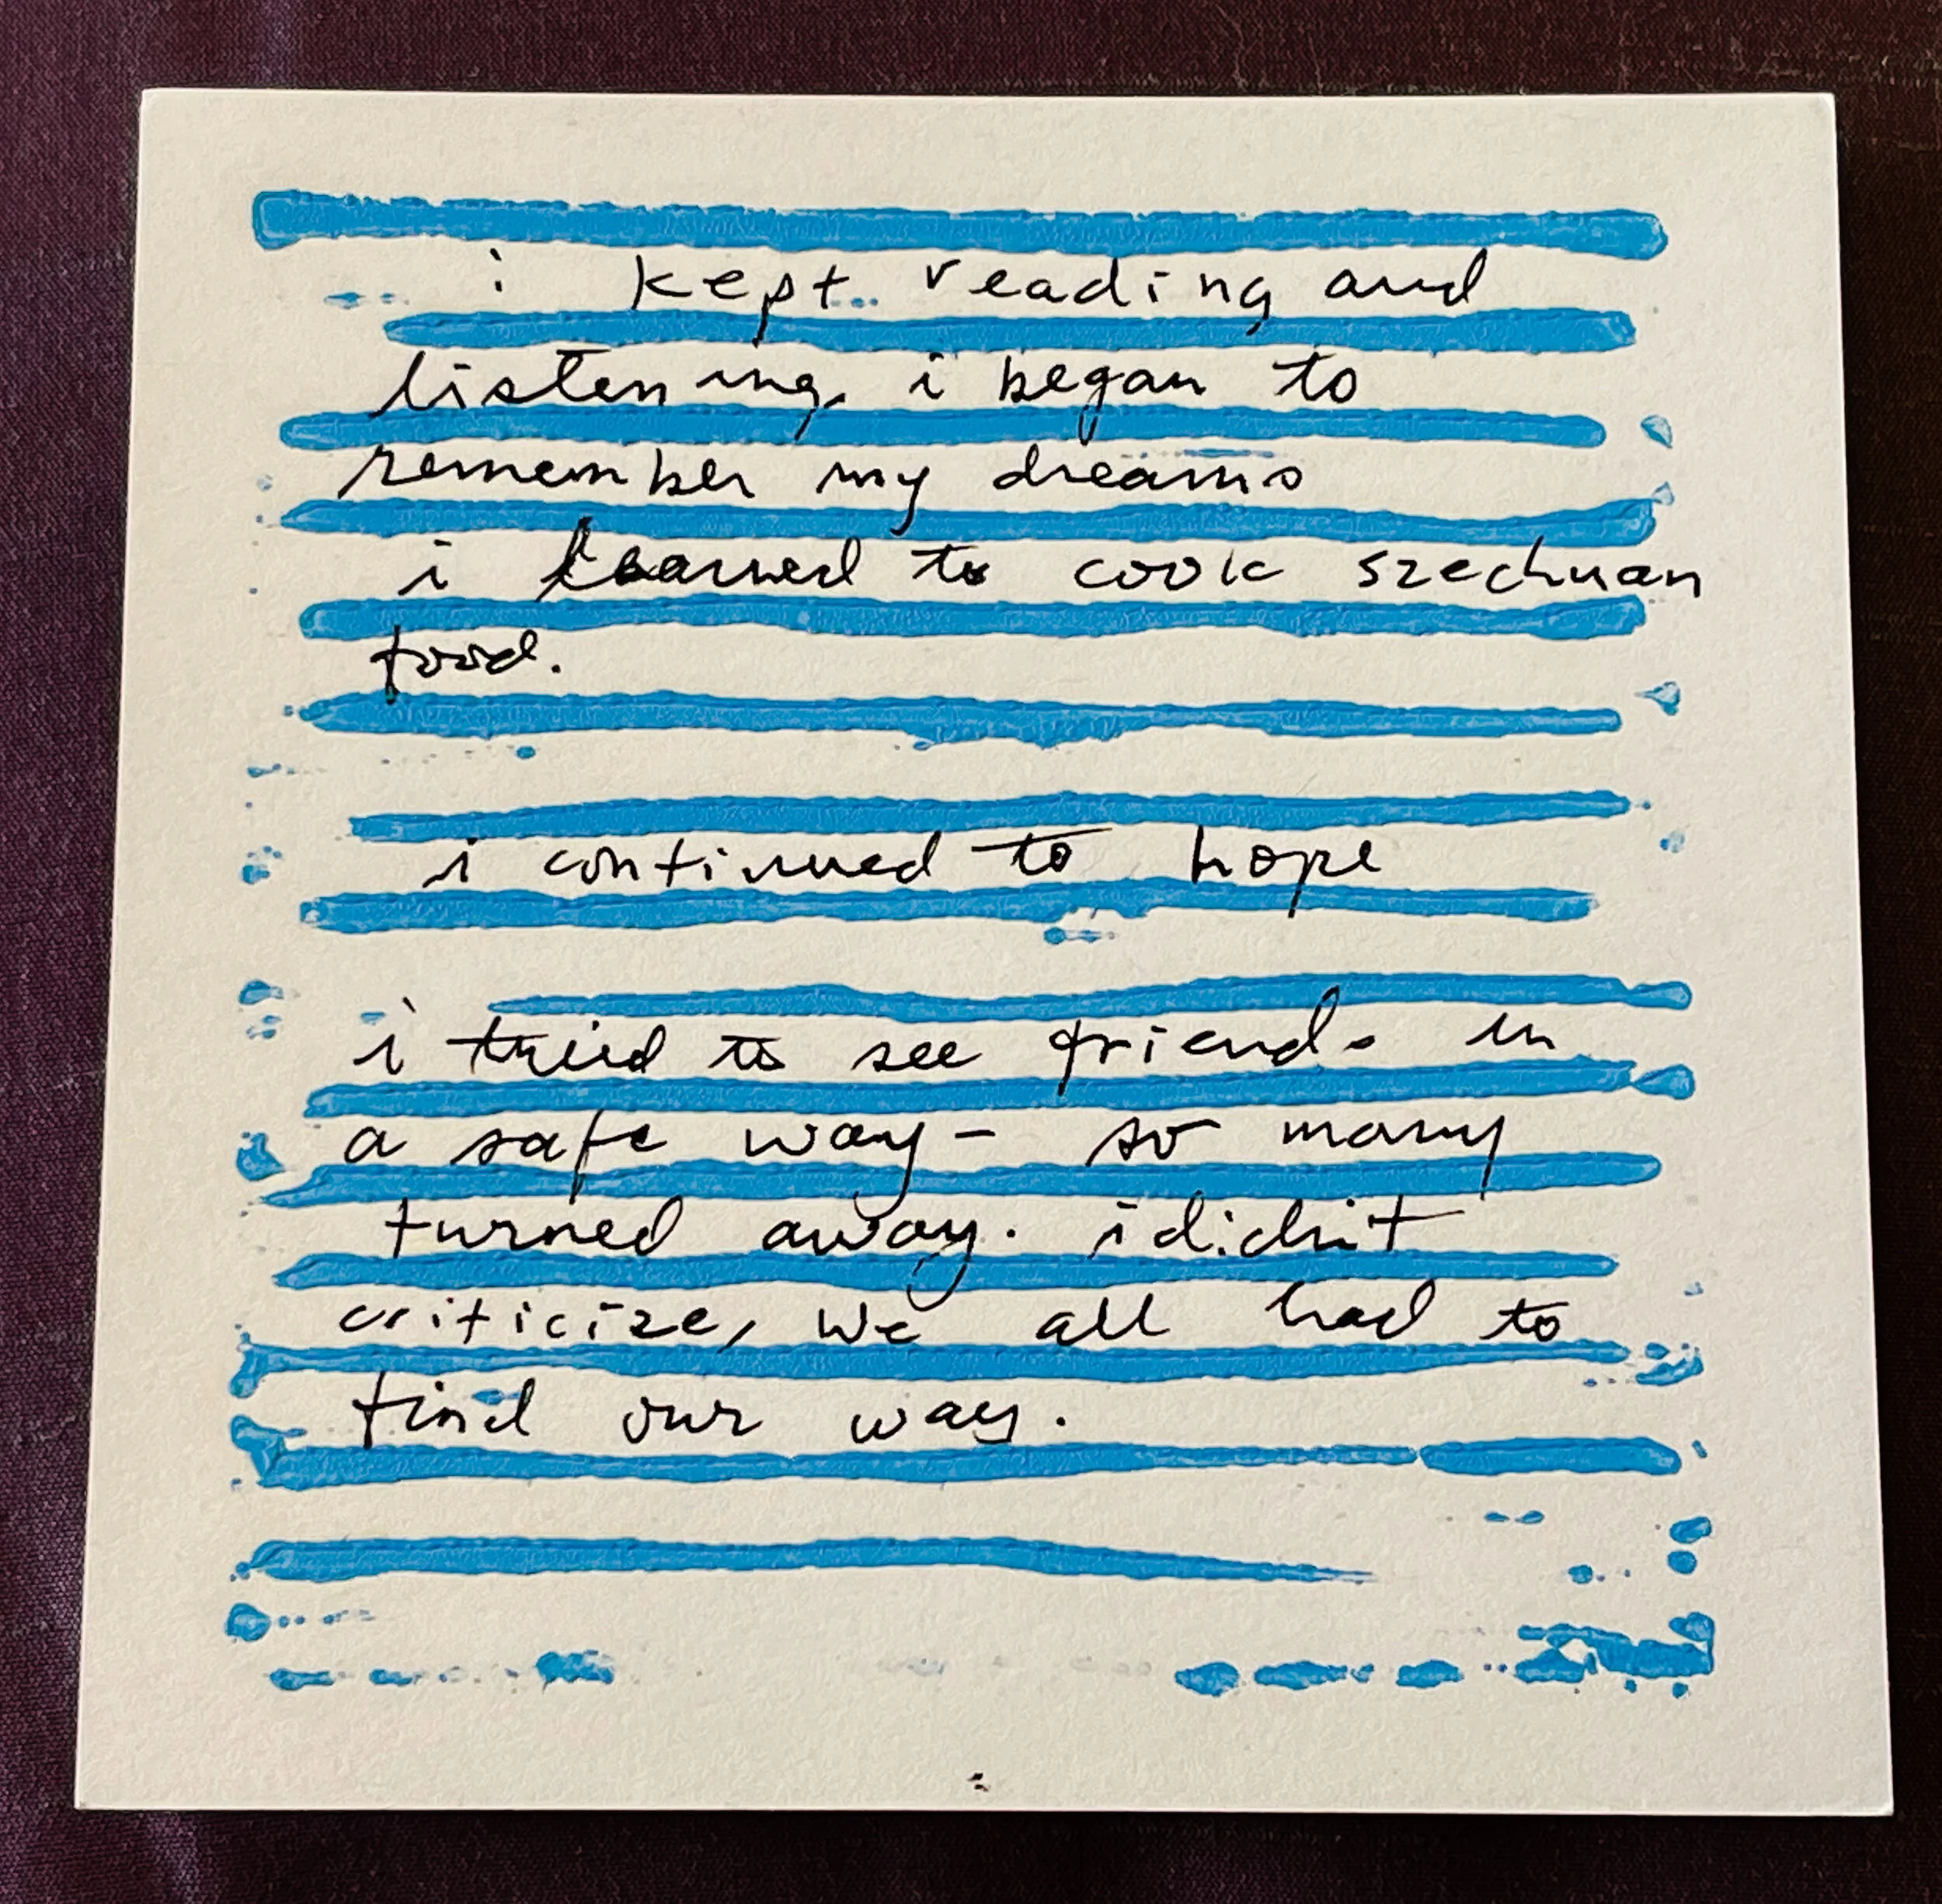 i kept reading and
listening. i began to
remember my dreams
i learned to cook szechuan
food.
i continued to hope
i tried to see friends in
a safe way - so many
turned away. i didn't
criticize, we all had to
find our way.